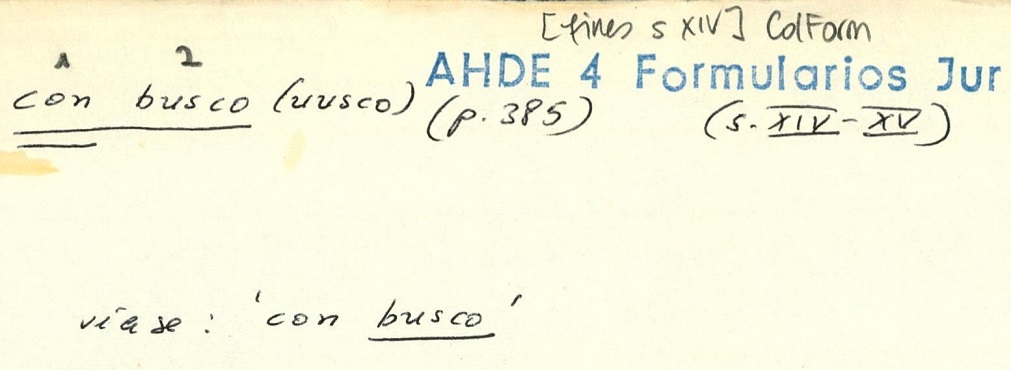 [fines s XIV] ColForm
1 2 AHDE 4 Formularios Jur
con busco (uusco) (p. 385) (s. XIV-XV)
véase: 'con busco'